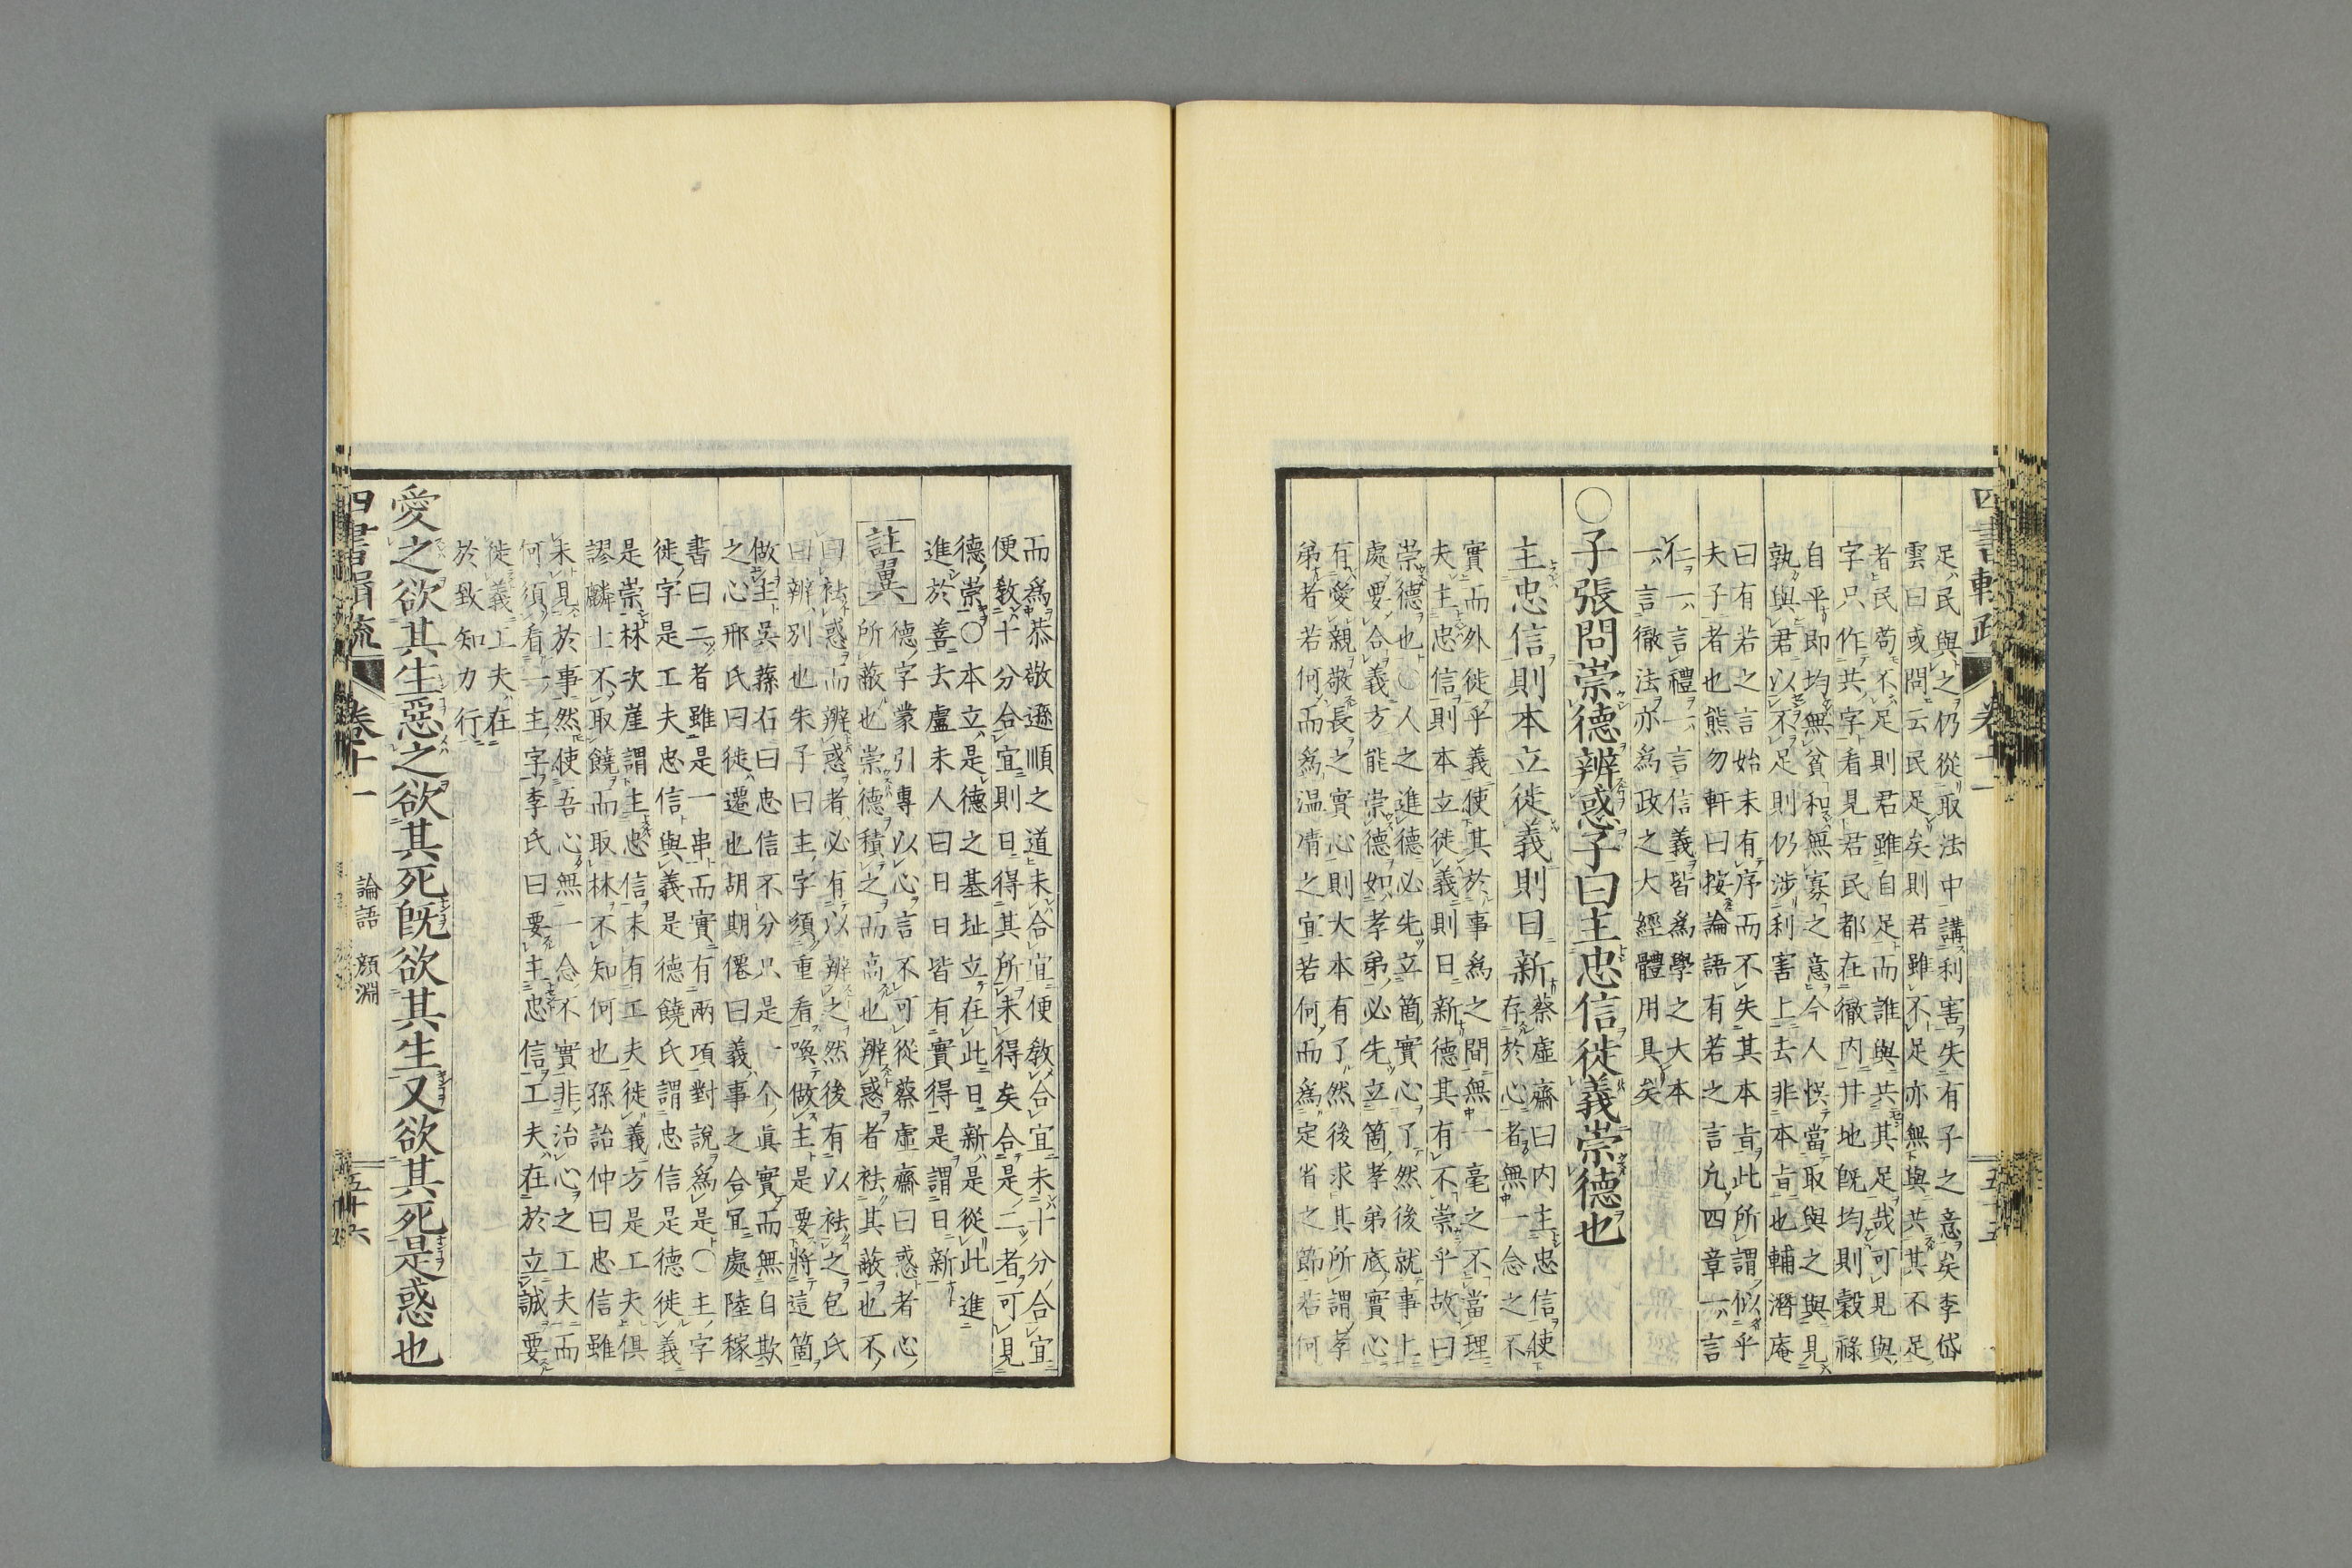 足民與之仍從取法中講利害失有子之意矣李岱
雲曰或問云民足矣則君雖不足亦無與共其不足
者民苟不足則君雖自足而誰與共其足哉可見與
字只作共字看見君民都在徹内井地既均則穀祿
自平即均無貧和無寡之意今人悞當取與之與見
孰與君以不足則仍涉利害上去非本旨也輔潛庵
曰有若之言始末有序而不失其本旨此所謂似乎
夫子者也熊勿軒曰按論語有若之言凢四章一言
仁一言禮一言信義皆爲學之大本
一言徹法亦爲政之大經體用具矣
〇子張問崇德辨惑子曰主忠信徙義崇德也
主忠信則本立徙義則日新
蔡虛齋曰内主忠信使
存於心者無一念之不
實而外徙乎義使其於事爲之間無一毫之不當理
夫主忠信則本立徙義則日新德其有不崇乎故曰
崇德也〇人之進德必先立箇實心了然後就事上
處要合義方能崇德如孝弟必先立箇孝弟底實心
有愛親敬長之實心則大本有了然後求其所謂孝
弟者若何而爲温凊之宜若何而爲定省之節若何
四書輯疏 卷十一 五十五
而爲恭敬遜順之道未合宜便敎合宜未十分合宜
便敎十分合宜則日得其所未得矣合是二者可見
德崇〇本立是德之基址立在此日新是從此進
進於善去盧未人曰日日皆有實得是謂日新
註翼
德字蒙引專以心言不可從蔡虛齋曰惑者心
所蔽也崇德積之而高也辨惑者袪其蔽也不
曰袪惑而辨惑者必有以辨之然後有以袪之包氏
曰辨別也朱子曰主字須重看喚做主是要將這箇
做主吳蓀石曰忠信不分只是一个眞實而無自欺
之心邢氏曰徙遷也胡期僊曰義事之合冝處陸稼
書曰二者雖是一串而實有兩項對說爲是〇主字
徙字是工夫忠信與義是德饒氏謂忠信是德徙義
是崇林次崖謂主忠信未有工夫徙義方是工夫俱
謬麟士不取饒而取林不知何也孫詒仲曰忠信雖
未見於事然使吾心無一念不實非治心之工夫而
何須看一主字李氏曰要主忠信工夫在於立誠要
徙義工夫在
於致知力行
愛之欲其生惡之欲其死既欲其生又欲其死是惑也
四書輯疏 卷十一 論語 顏淵 五十六